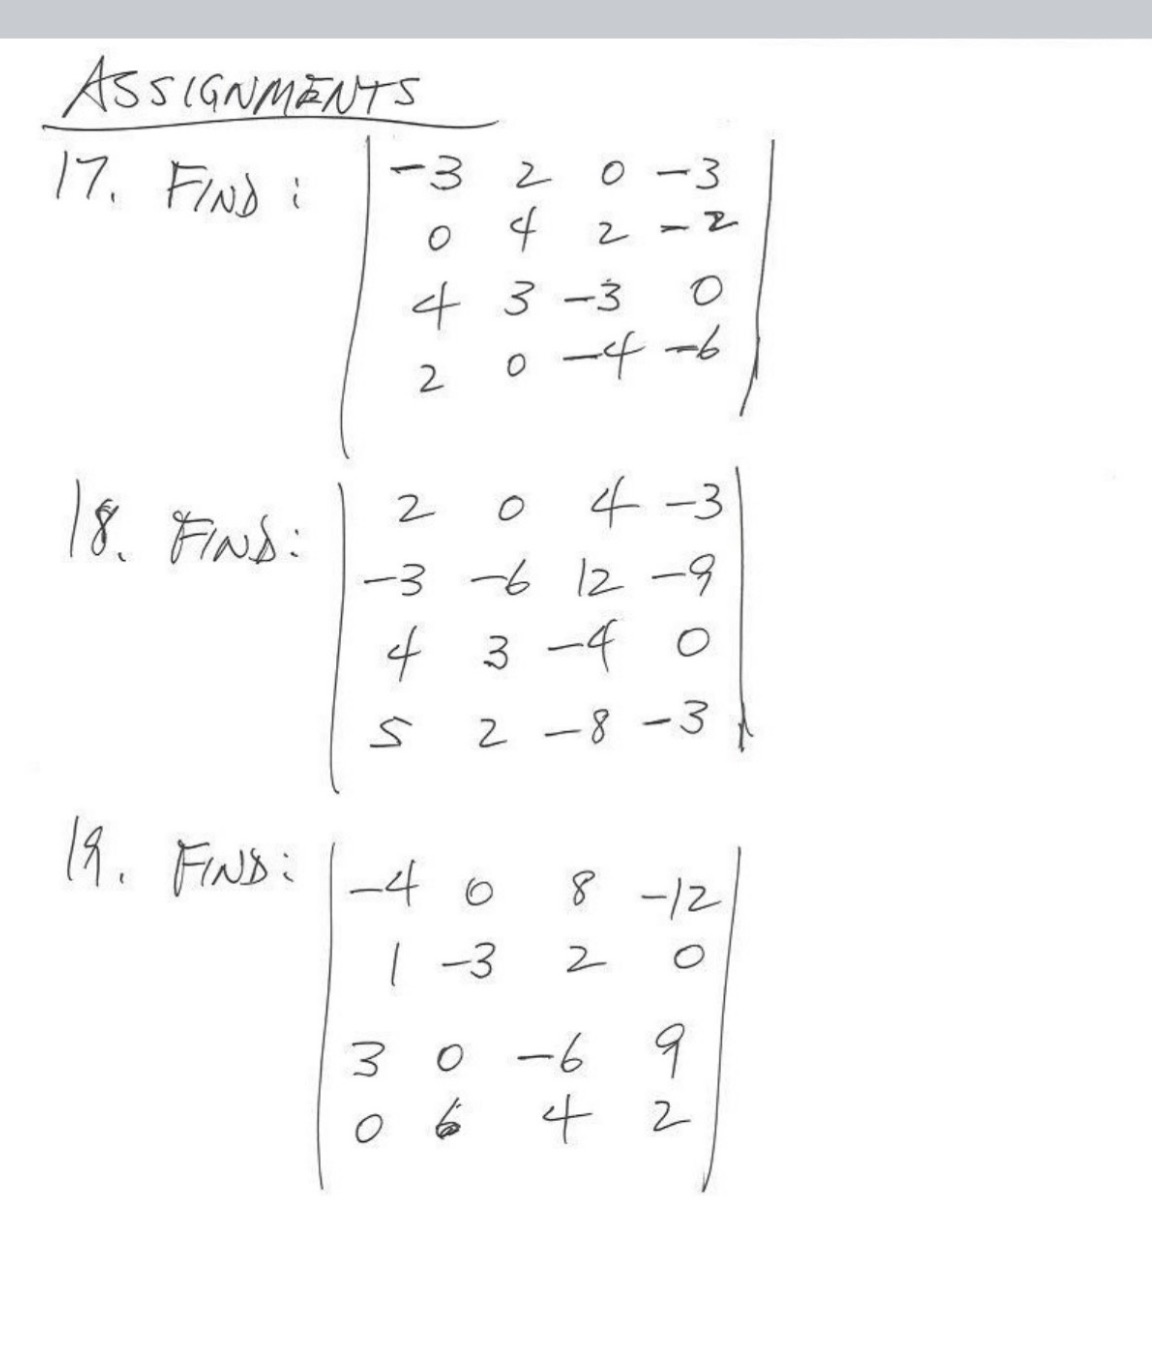 ASSIGNMENTS
17. FIND: | -3 2 0 -3 |
0 4 2 -2
4 3 -3 0
2 0 -4 -6
18. FIND: | 2 0 4 -3 |
-3 -6 12 -9
4 3 -4 0
5 2 -8 -3
19. FIND: | -4 0 8 -12 |
1 -3 2 0
3 0 -6 9
0 6 4 2